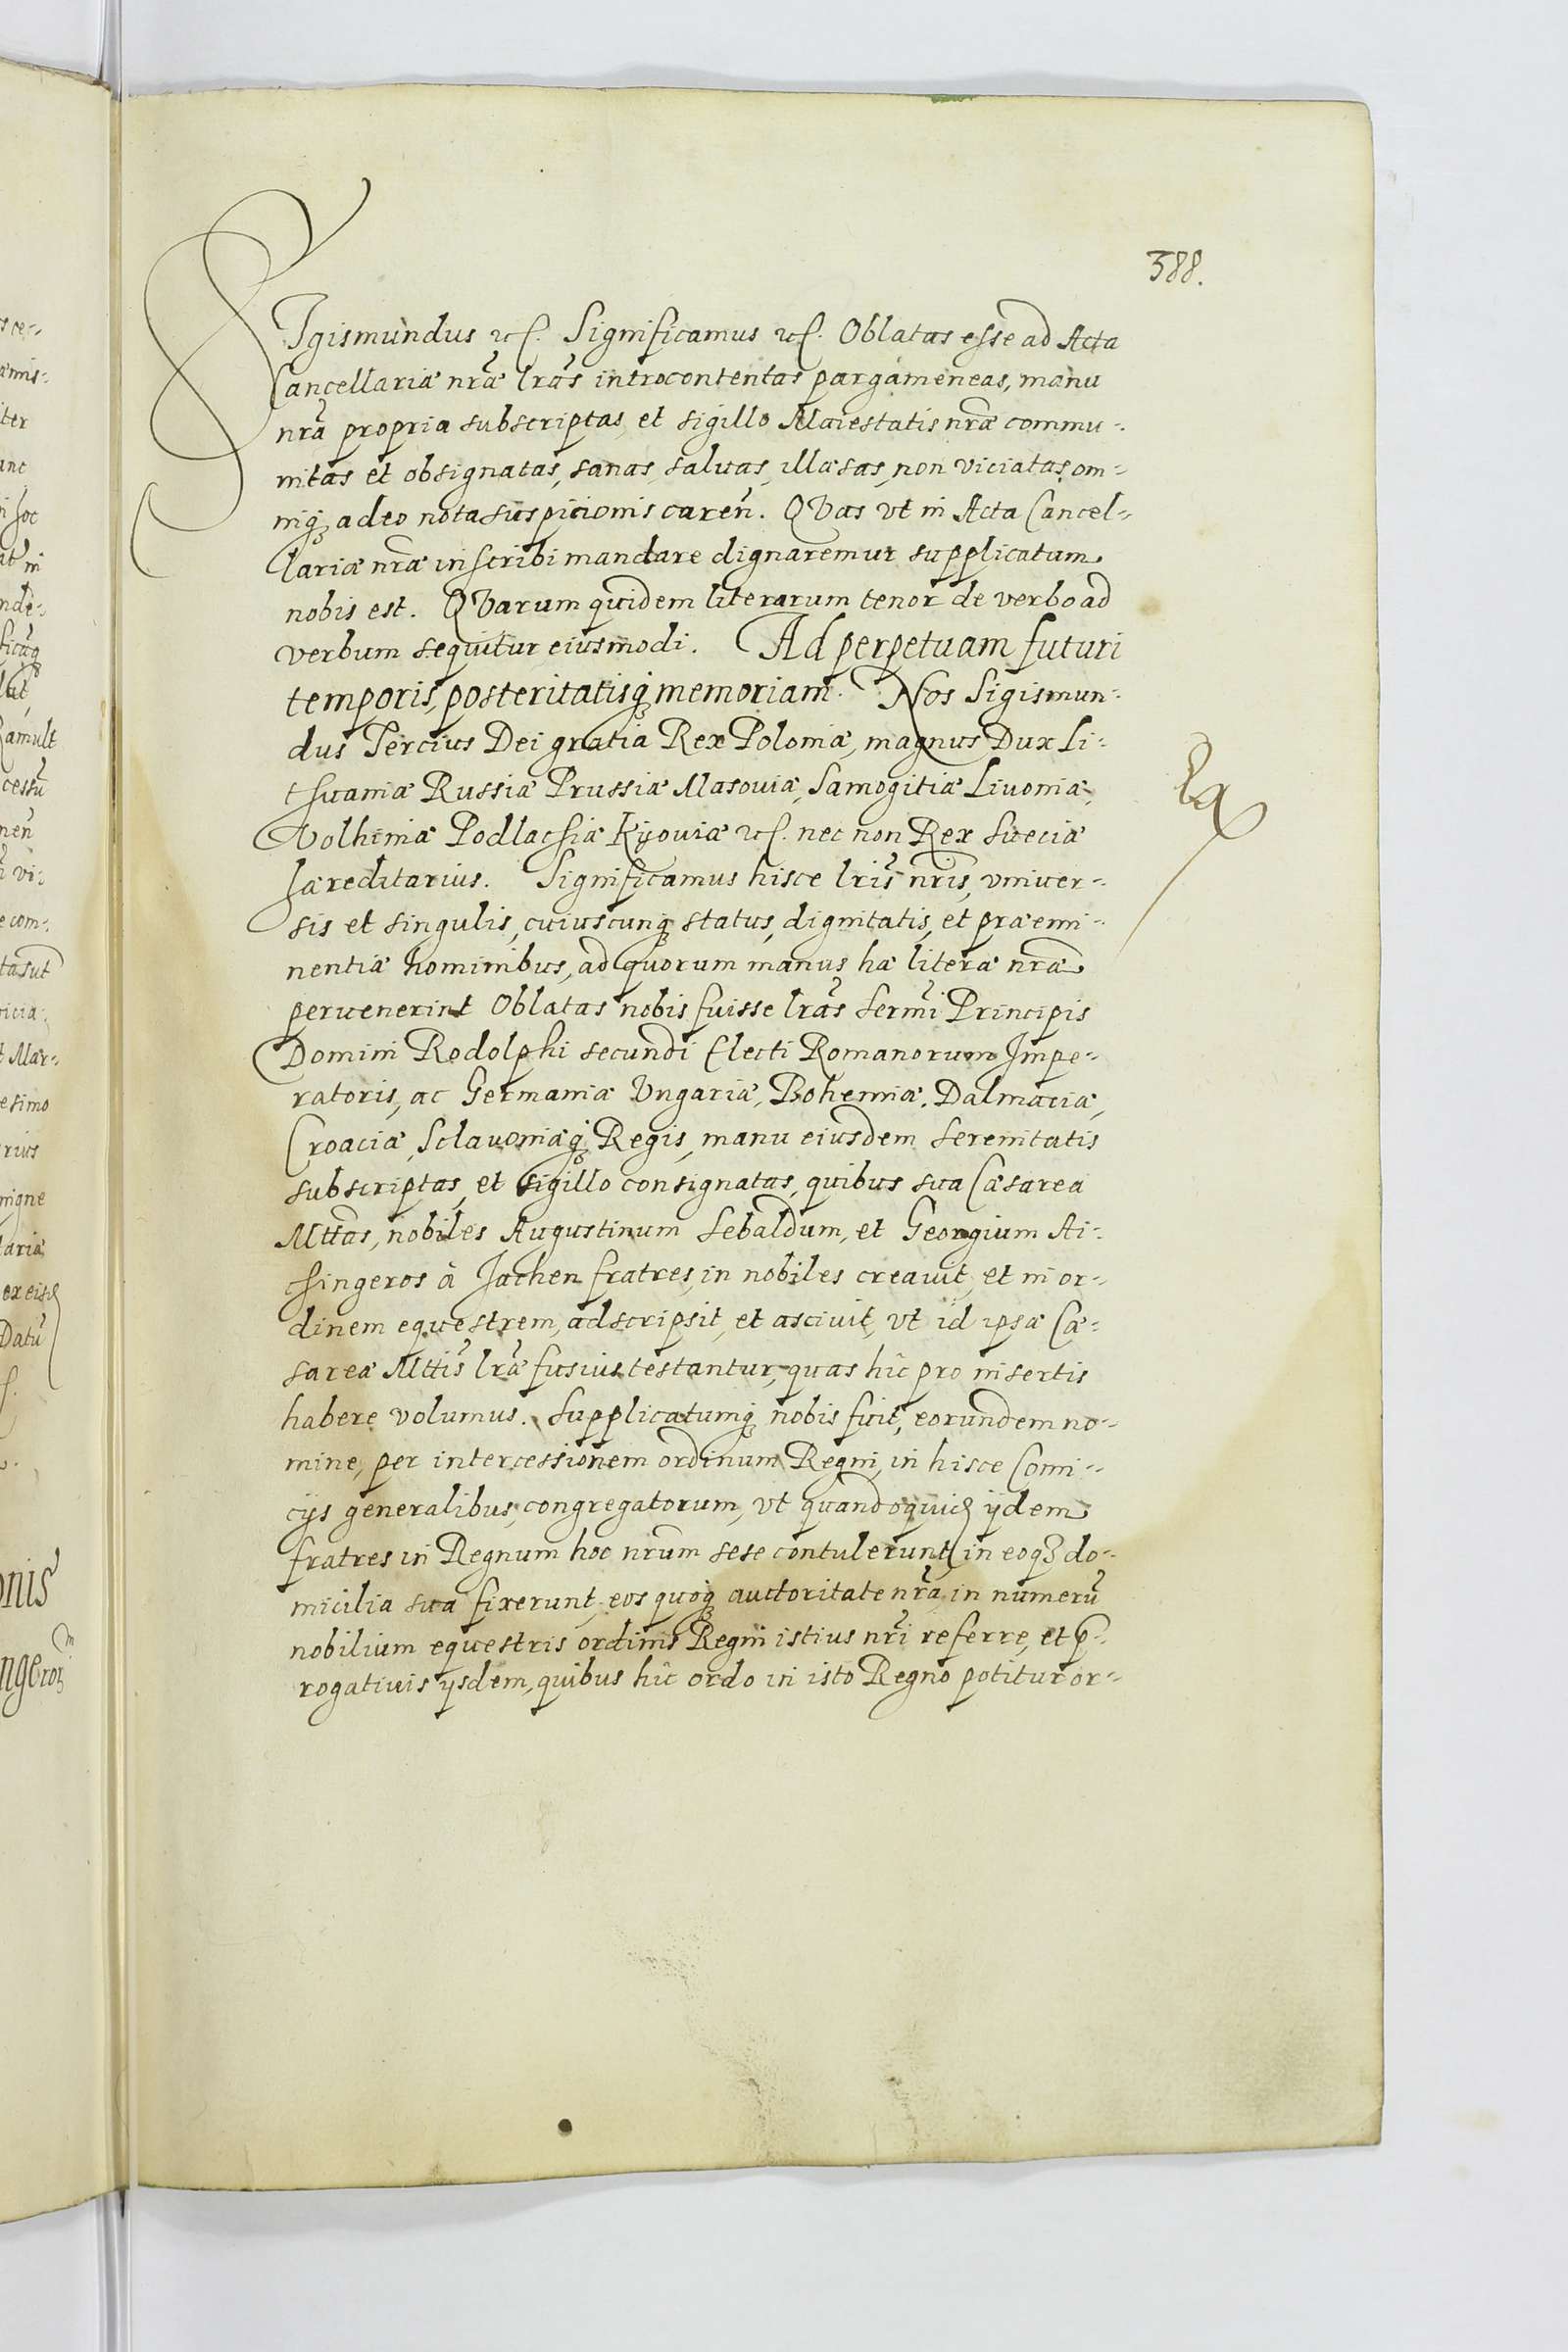 388.
SIgismundus etc. Significamus etc. Oblatas esse ad Acta
Cancellariæ nræ lras introcontentas pargameneas, manu
nra propria subscriptas, et sigillo Maiestatis nræ commu-
nitas et obsignatas, sanas, saluas, illæsas, non viciatas, om-
niq; adeo nota suspicionis caren. QVas vt in Acta Cancel-
lariæ nræ inscribi mandare dignaremur supplicatum
nobis est. QVarum quidem literarum tenor de verbo ad
verbum sequitur eiusmodi. Ad perpetuam futuri
temporis, posteritatisq; memoriam. Nos Sigismun-
dus Tercius Dei gratia Rex Poloniæ, magnus Dux Li-
thuaniæ Russiæ Prussiæ Masouiæ, Samogitiæ Liuoniæ,
Volhiniæ Podlachiæ Kijouiæ etc. nec non Rex Sueciæ
hæreditarius. Significamus hisce lris nris, vniuer-
sis et singulis, cuiuscunq; status, dignitatis, et præemi-
nentiæ hominibus, ad quorum manus hæ literæ nræ
peruenerint Oblatas nobis fuisse lras Sermi Principis
Domini Rodolphi secundi Electi Romanorum Impe-
ratoris, ac Germaniæ Vngariæ, Bohemiæ, Dalmaciæ,
Croaciæ, Sclauoniæq; Regis, manu eiusdem Serenitatis
subscriptas, et sigillo consignatas, quibus sua Cæsarea
Mttas, nobiles Augustinum Sebaldum, et Georgium Ai-
chingeros à Jachen fratres, in nobiles creauit, et in or-
dinem equestrem, adscripsit, et asciuit, vt id ipsæ Cæ-
sareæ Mttis lræ fusius testantur, quas hîc pro insertis
habere volumus. Supplicatumq; nobis fuit, eorundem no-
mine, per intercessionem ordinum Regni, in hisce Comi-
cijs generalibus, congregatorum, vt quandoquid ijdem
fratres in Regnum hoc nrum sese contulerunt, in eoq3 do-
micilia sua fixerunt, eos quoq; auctoritate nra, in numerū
nobilium equestris ordinis Regni istius nri referre, et p-
rogatiuis ijsdem, quibus hîc ordo in isto Regno potitur or-